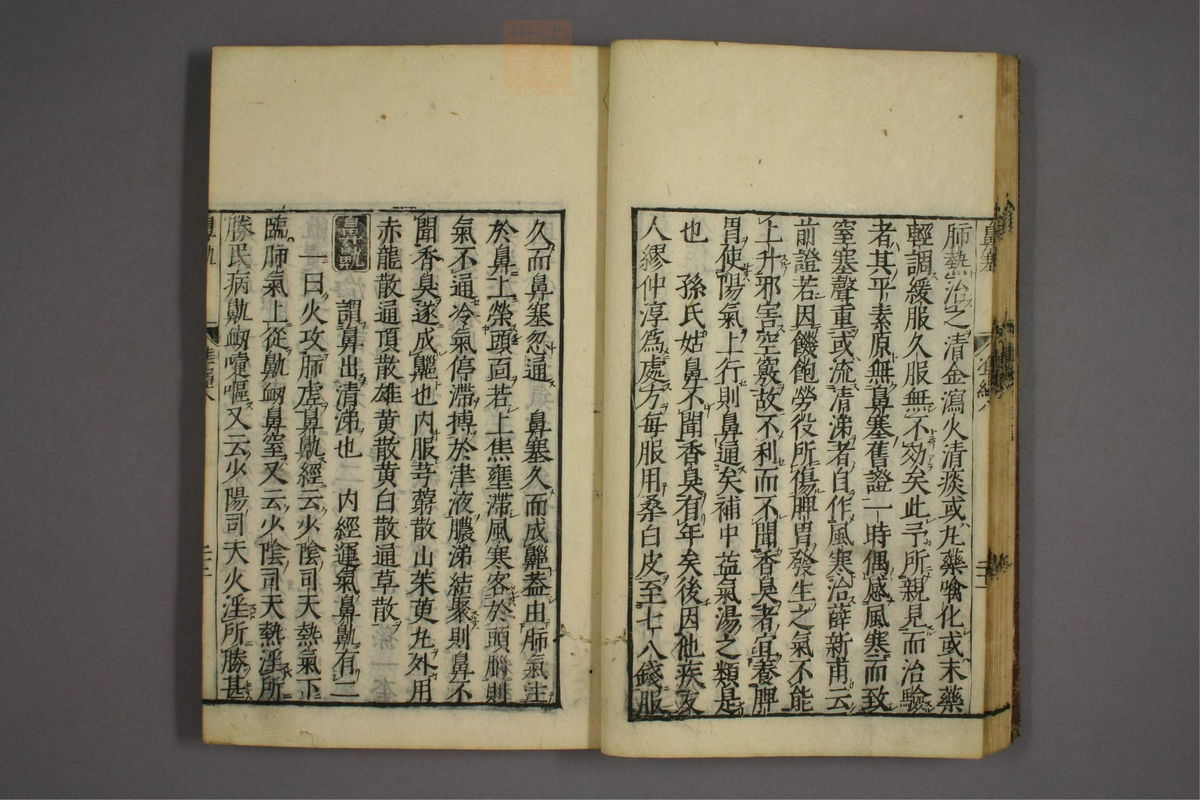 鼻塞
肺熱治之清金瀉火清痰或丸藥噙化或末藥
輕調緩服久服無不効矣此予所親見而治驗
者其平素原無鼻塞舊證一時偶感風寒而致
窒塞聲重或流清涕者自作風寒治薛新甫云
前證若因饑飽勞役所傷脾胃發生之氣不能
上升邪害空竅故不利而不聞香臭者宜養脾
胃使陽氣上行則鼻通矣補中益氣湯之類是
也 孫氏姑鼻不聞香臭有年矣後因他疾友
人繆仲淳為處方每服用桑白皮至七八錢服
久而鼻塞忽通 鼻塞久而成齆蓋由肺氣注
於鼻上榮頭面若上焦壅滯風寒客於頭腦則
氣不通冷氣停滯搏於津液膿涕結聚則鼻不
聞香臭遂成齆也内服芎藭散山茱萸丸外用
赤龍散通頂散雄黄散黄白散通草散
鼻鼽 謂鼻出清涕也 内經運氣鼻鼽有二
一曰火攻肺虚鼻鼽經云少陰司天熱氣下
臨肺氣上從鼽衄鼻窒又云少陰司天熱淫所
勝民病鼽衄嚏嘔又云少陽司天火淫所勝甚
鼻鼽